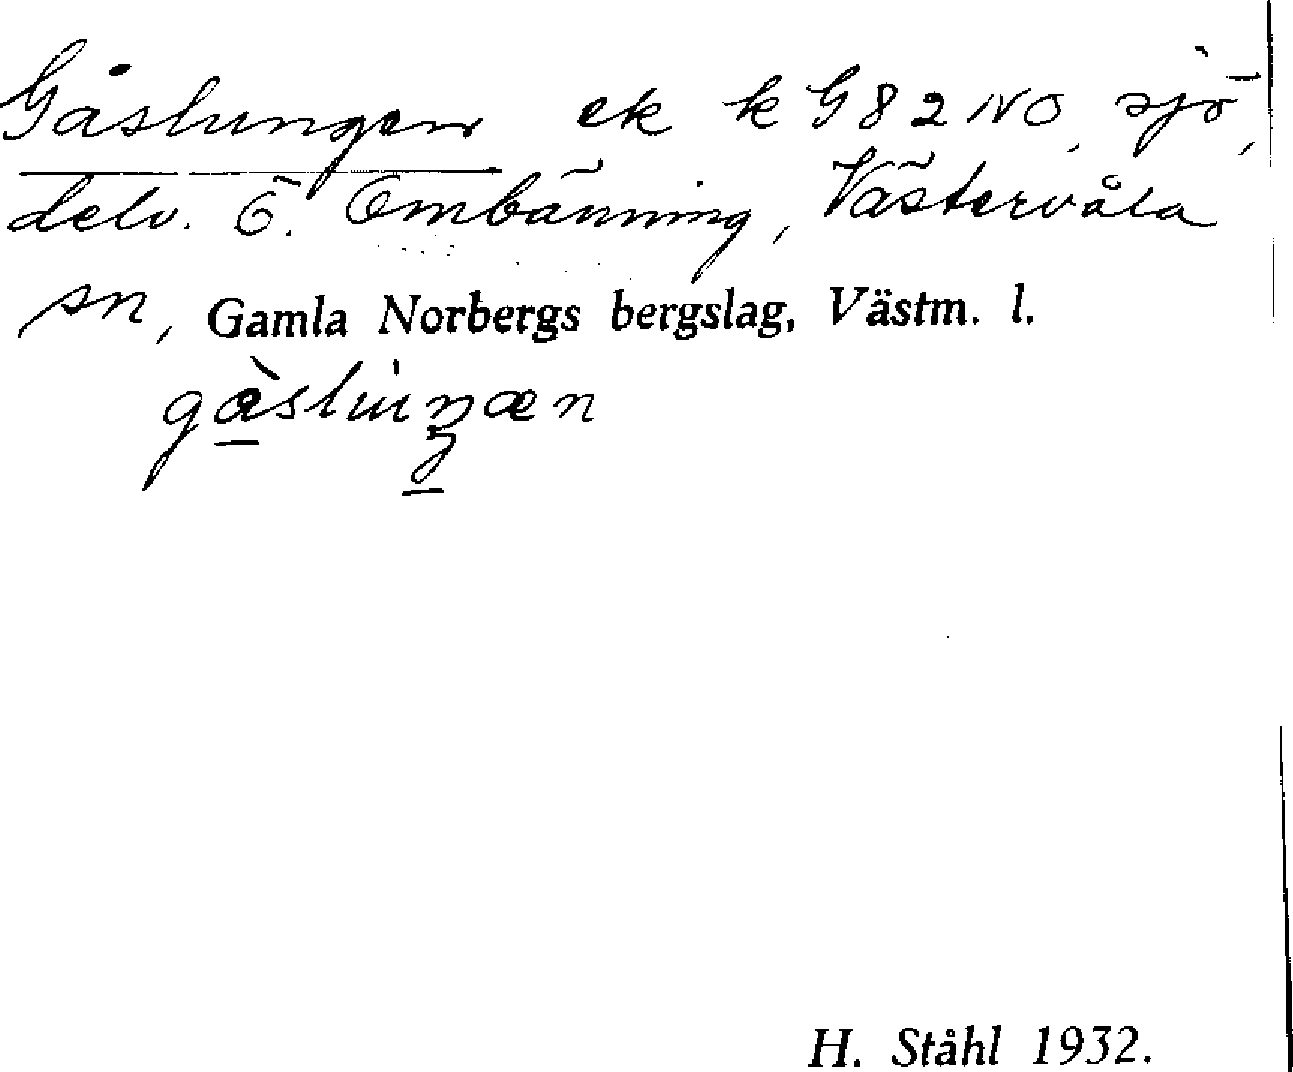 Gåslungen ek k G 8 2 NO, sjö,
delv. Ö. Ombänning, Västervåla
sn, Gamla Norbergs bergslag, Västm. l.
H. Ståhl 1932.